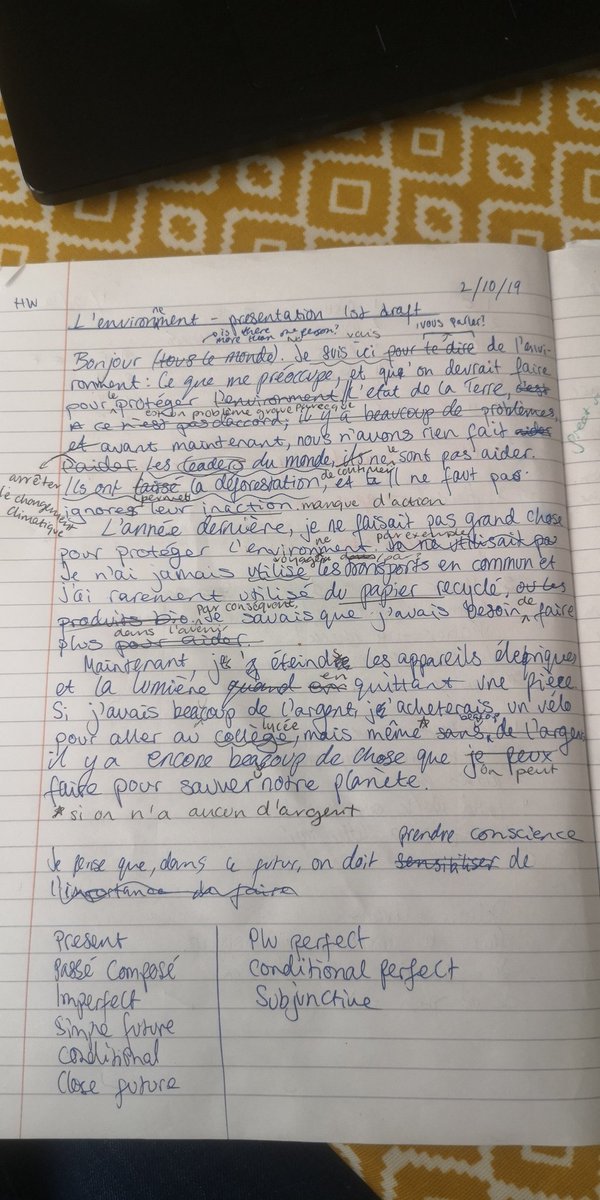 HW
2/10/19
ne
L'environment - presentation 1st draft
is there more than one person?
vous
vous parler!
Bonjour (tous le monde). Je suis ici pour te dire de l'envi-
ronment: Ce que me préoccupe, et qu'on devrait faire
pour protéger l'environment, l'état de la Terre, c'est
le
est un problème grave parce que
ce n'est pas d'accord; il y a beaucoup de problèmes
et avant maintenant, nous n'avons rien fait aider
D'aider. Les leaders du monde, ils ne sont pas aider.
le
arrêter
le changement
climatique
de continuer
Ils ont laissé la déforestation, et il ne faut pas
permet
ignorer leur inaction. manque d'action
L'année dernière, je ne faisait pas grand chose
ne
par exemple
pour protéger l'environment
Je n'ai jamais utilisé les transports en commun et
voyagé
j'ai rarement utilisé du papier recyclé, ou les
par conséquent,
produits bio. Je savais que j'avais besoin de faire
dans l'avenir
plus pour aider
Maintenant, j' éteinds les appareils électriques
en
et la lumière quand quittant une pièce.
Si j'avais beaucoup de l'argent, j'acheterais un vélo
lycée
beaucoup
pour aller au collège, mais même * sans de l'argent
il y a encore beaucoup de chose que je peux
on peut
faire pour sauver notre planète.
* si on n'a aucun d'argent
prendre conscience
Je pense que, dans ce futur, on doit sensibiliser de
l'importance de faire
Present
Passé Composé
Imperfect
Simple future
Conditional
Close future
Plu perfect
Conditional perfect
Subjunctive